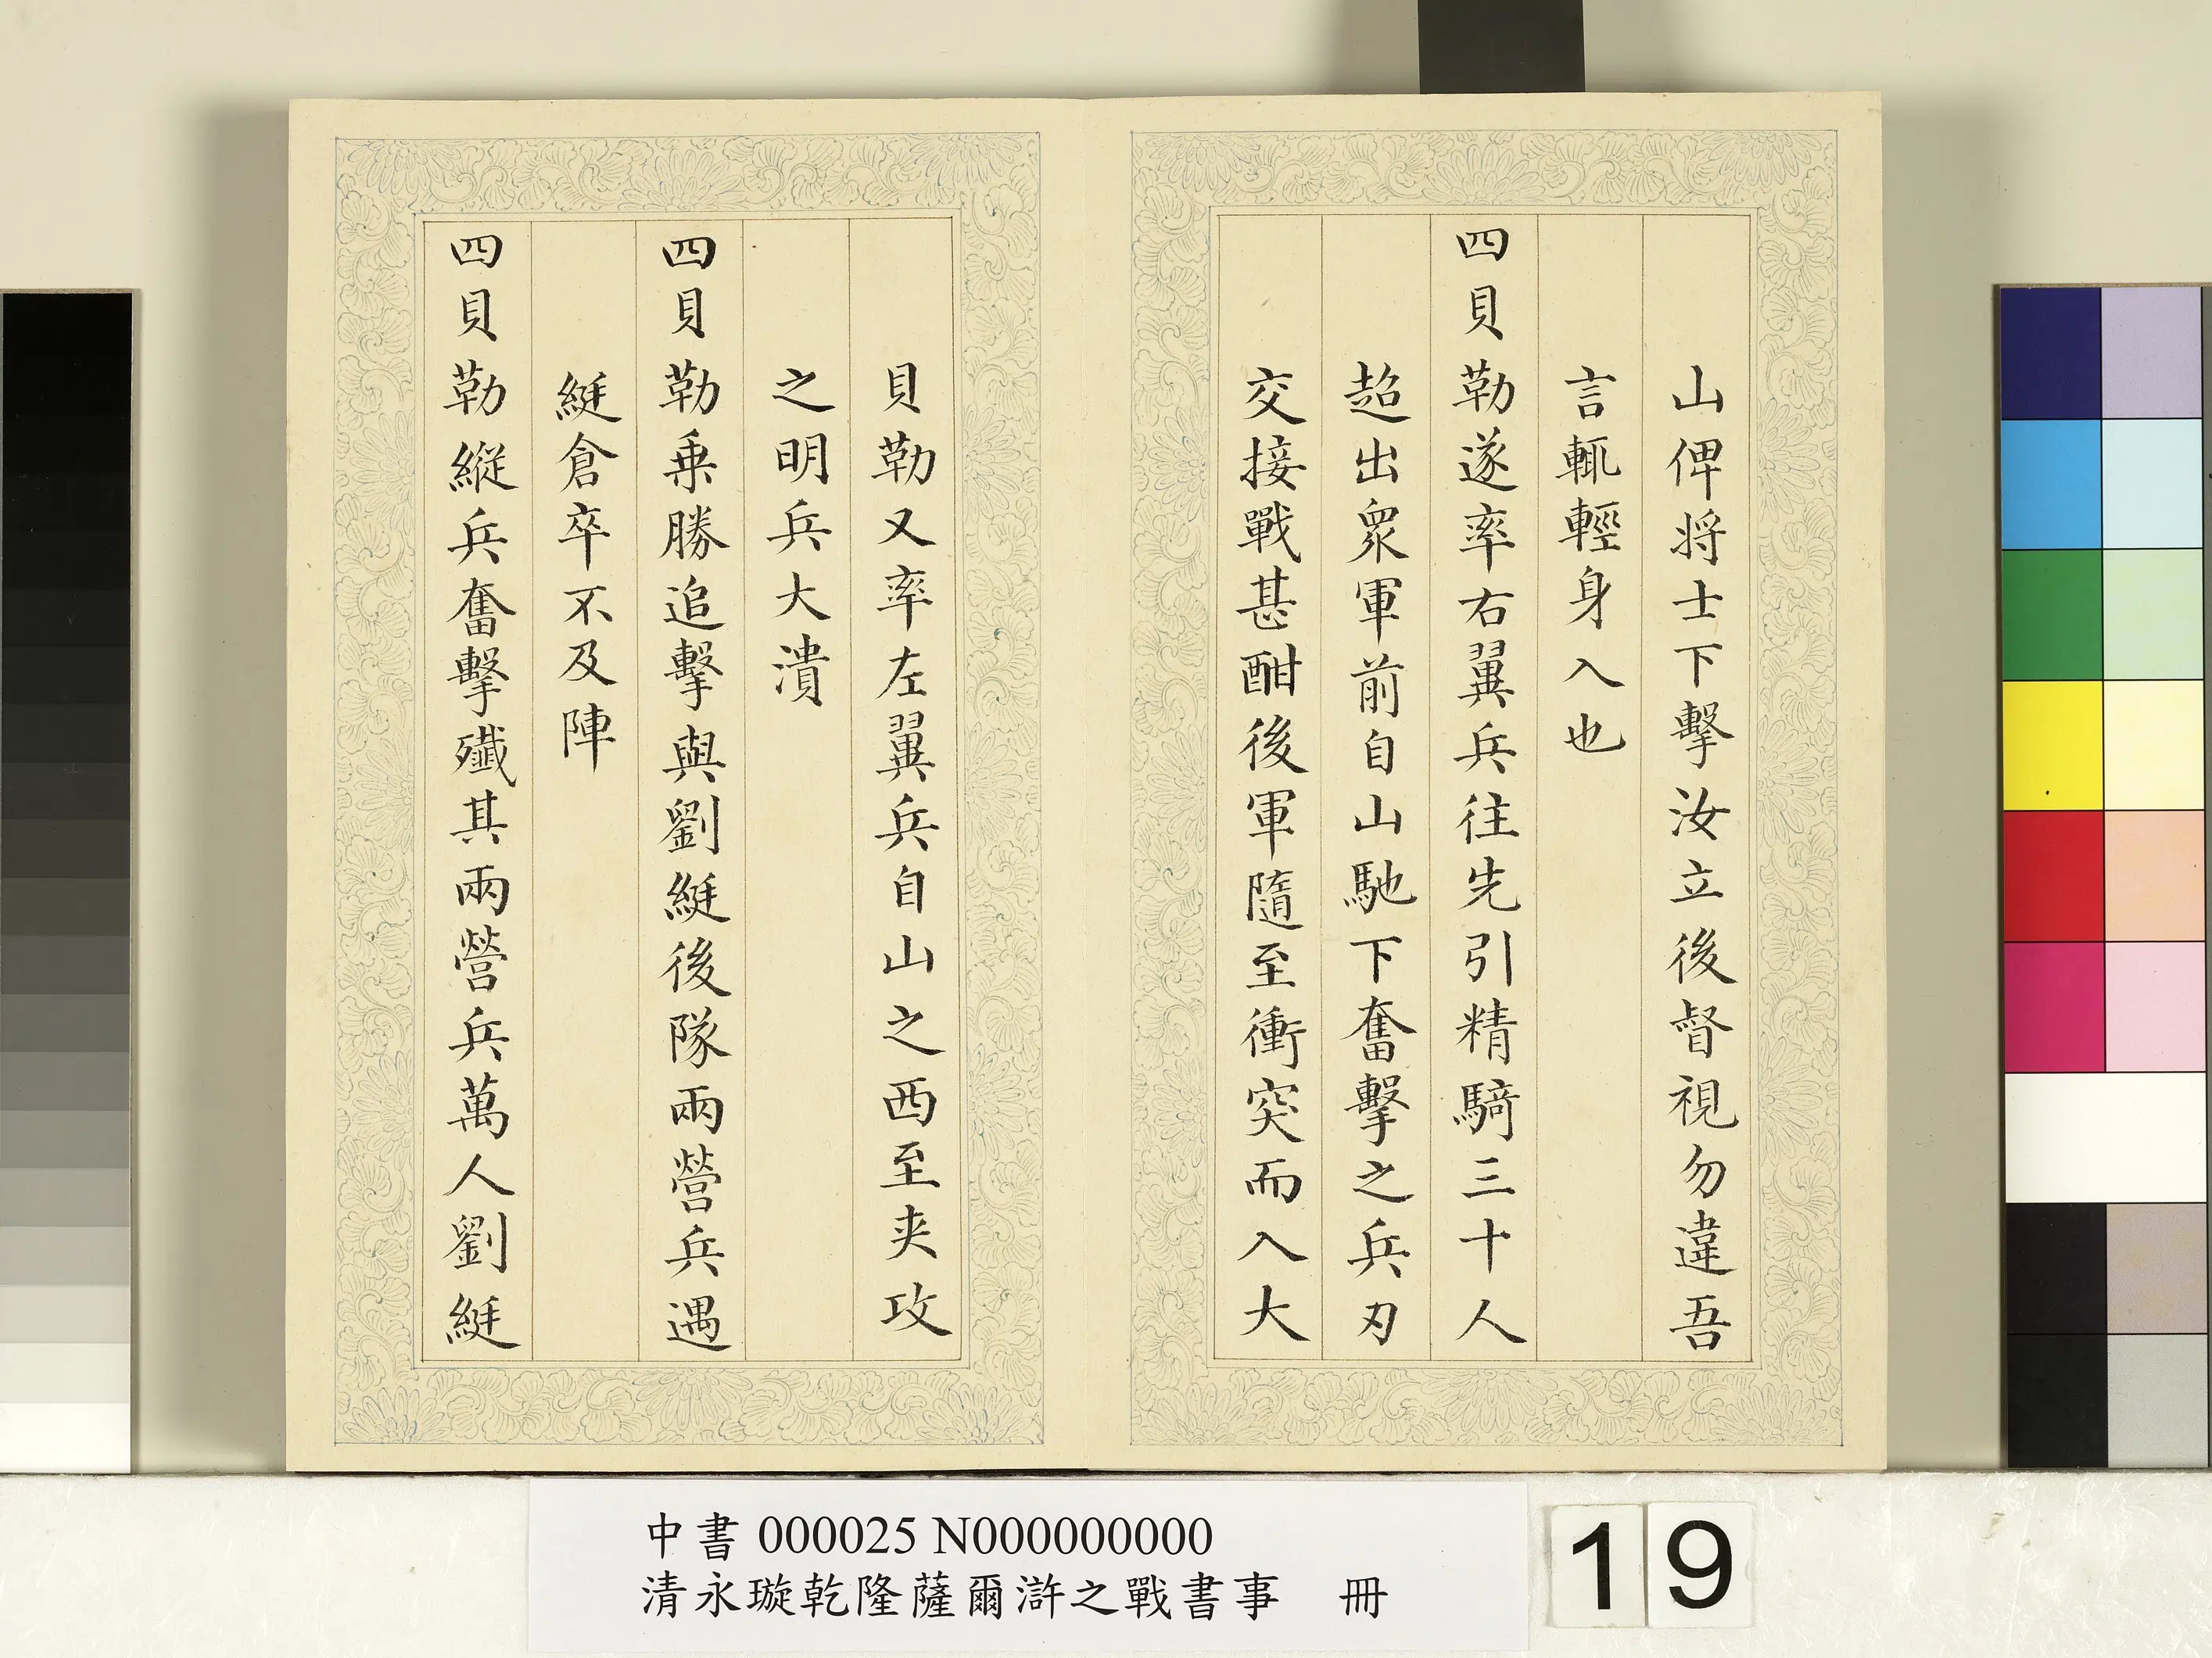 山俾將士下擊汝立後督視勿違吾
言輒輕身入也
四貝勒遂率右翼兵往先引精騎三十人
超出衆軍前自山馳下奮擊之兵刃
交接戰甚酣後軍隨至衝突而入大
貝勒又率左翼兵自山之西至夾攻
之明兵大潰
四貝勒乗勝追擊與劉綎後隊兩營兵遇
綎倉卒不及陣
四貝勒縱兵奮擊殲其兩營兵萬人劉綎
中書 000025 N000000000
清永璇乾隆薩爾滸之戰書事 冊
19